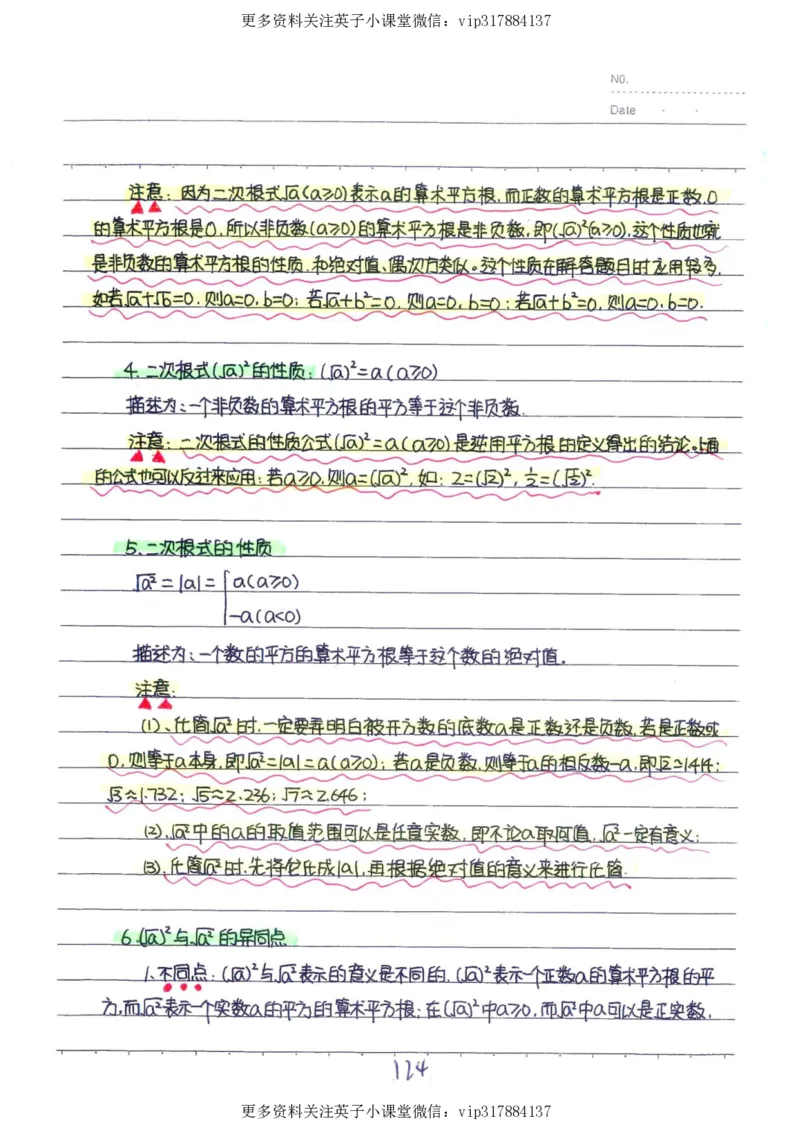 更多资料关注英子小课堂微信：vip317884137
NO.
Date
注意：因为二次根式√a(a≥0)表示a的算术平方根，而正数的算术平方根是正数，0
的算术平方根是0，所以非负数(a≥0)的算术平方根是非负数，即(√a)²(a≥0)，这个性质也就
是非负数的算术平方根的性质，和绝对值、偶次方类似。这个性质在解答题目时应用较多，
如若√a+√b=0，则a=0，b=0；若√a+b²=0，则a=0，b=0；若√a+b²=0，则a=0，b=0.
4.二次根式(√a)²的性质：(√a)²=a(a≥0)
描述为：一个非负数的算术平方根的平方等于这个非负数.
注意：二次根式的性质公式(√a)²=a(a≥0)是逆用平方根的定义得出的结论。上面
的公式也可以反过来应用：若a≥0，则a=(√a)²，如：2=(√2)²，1/2=(√1/2)².
5.二次根式的性质
√a²=|a|={a(a≥0)
-a(a<0)
描述为：一个数的平方的算术平方根等于这个数的绝对值.
注意：
(1)、化简√a²时，一定要弄明白被开方数的底数a是正数还是负数，若是正数或
0，则等于a本身，即√a²=|a|=a(a≥0)；若a是负数，则等于a的相反数-a，即√2≈1.414；
√3≈1.732；√5≈2.236；√7≈2.646；
(2)、√a²中的a的取值范围可以是任意实数，即不论a取何值，√a²一定有意义；
(3)、化简√a²时，先将它化成|a|，再根据绝对值的意义来进行化简.
6.(√a)²与√a²的异同点
1、不同点：(√a)²与√a²表示的意义是不同的，(√a)²表示一个正数a的算术平方根的平
方，而√a²表示一个实数a的平方的算术平方根；在(√a)²中a≥0，而√a²中a可以是正实数，
124
更多资料关注英子小课堂微信：vip317884137